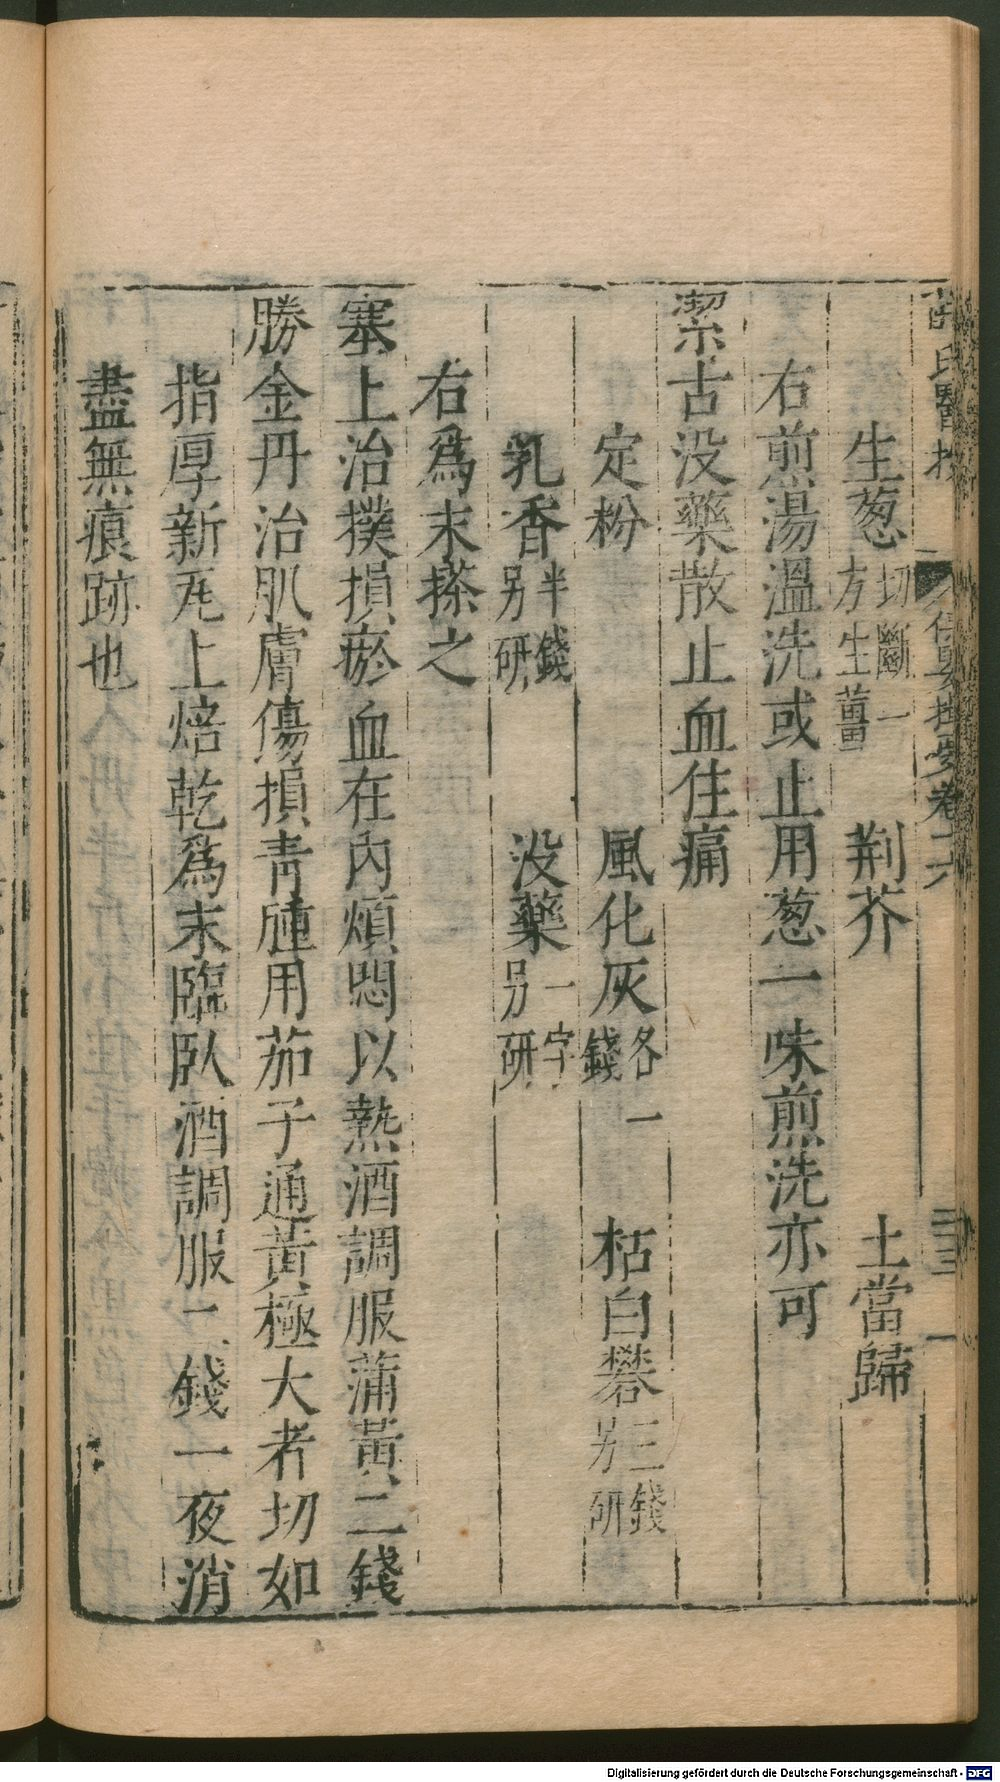 薛氏醫按 保嬰撮要卷十六 三三
生葱切斷一方生薑 荆芥 土當歸
右煎湯溫洗或止用葱一味煎洗亦可
潔古没藥散止血住痛
定粉 風化灰各一錢 枯白礬三錢别研
乳香半錢别研 没藥一字别研
右爲末搽之
塞上治撲損瘀血在內煩悶以熱酒調服蒲黃二錢
勝金丹治肌膚傷損青腫用茄子通黃極大者切如
指厚新瓦上焙乾爲末臨臥酒調服二錢一夜消
盡無痕跡也
Digitalisierung gefördert durch die Deutsche Forschungsgemeinschaft - DFG